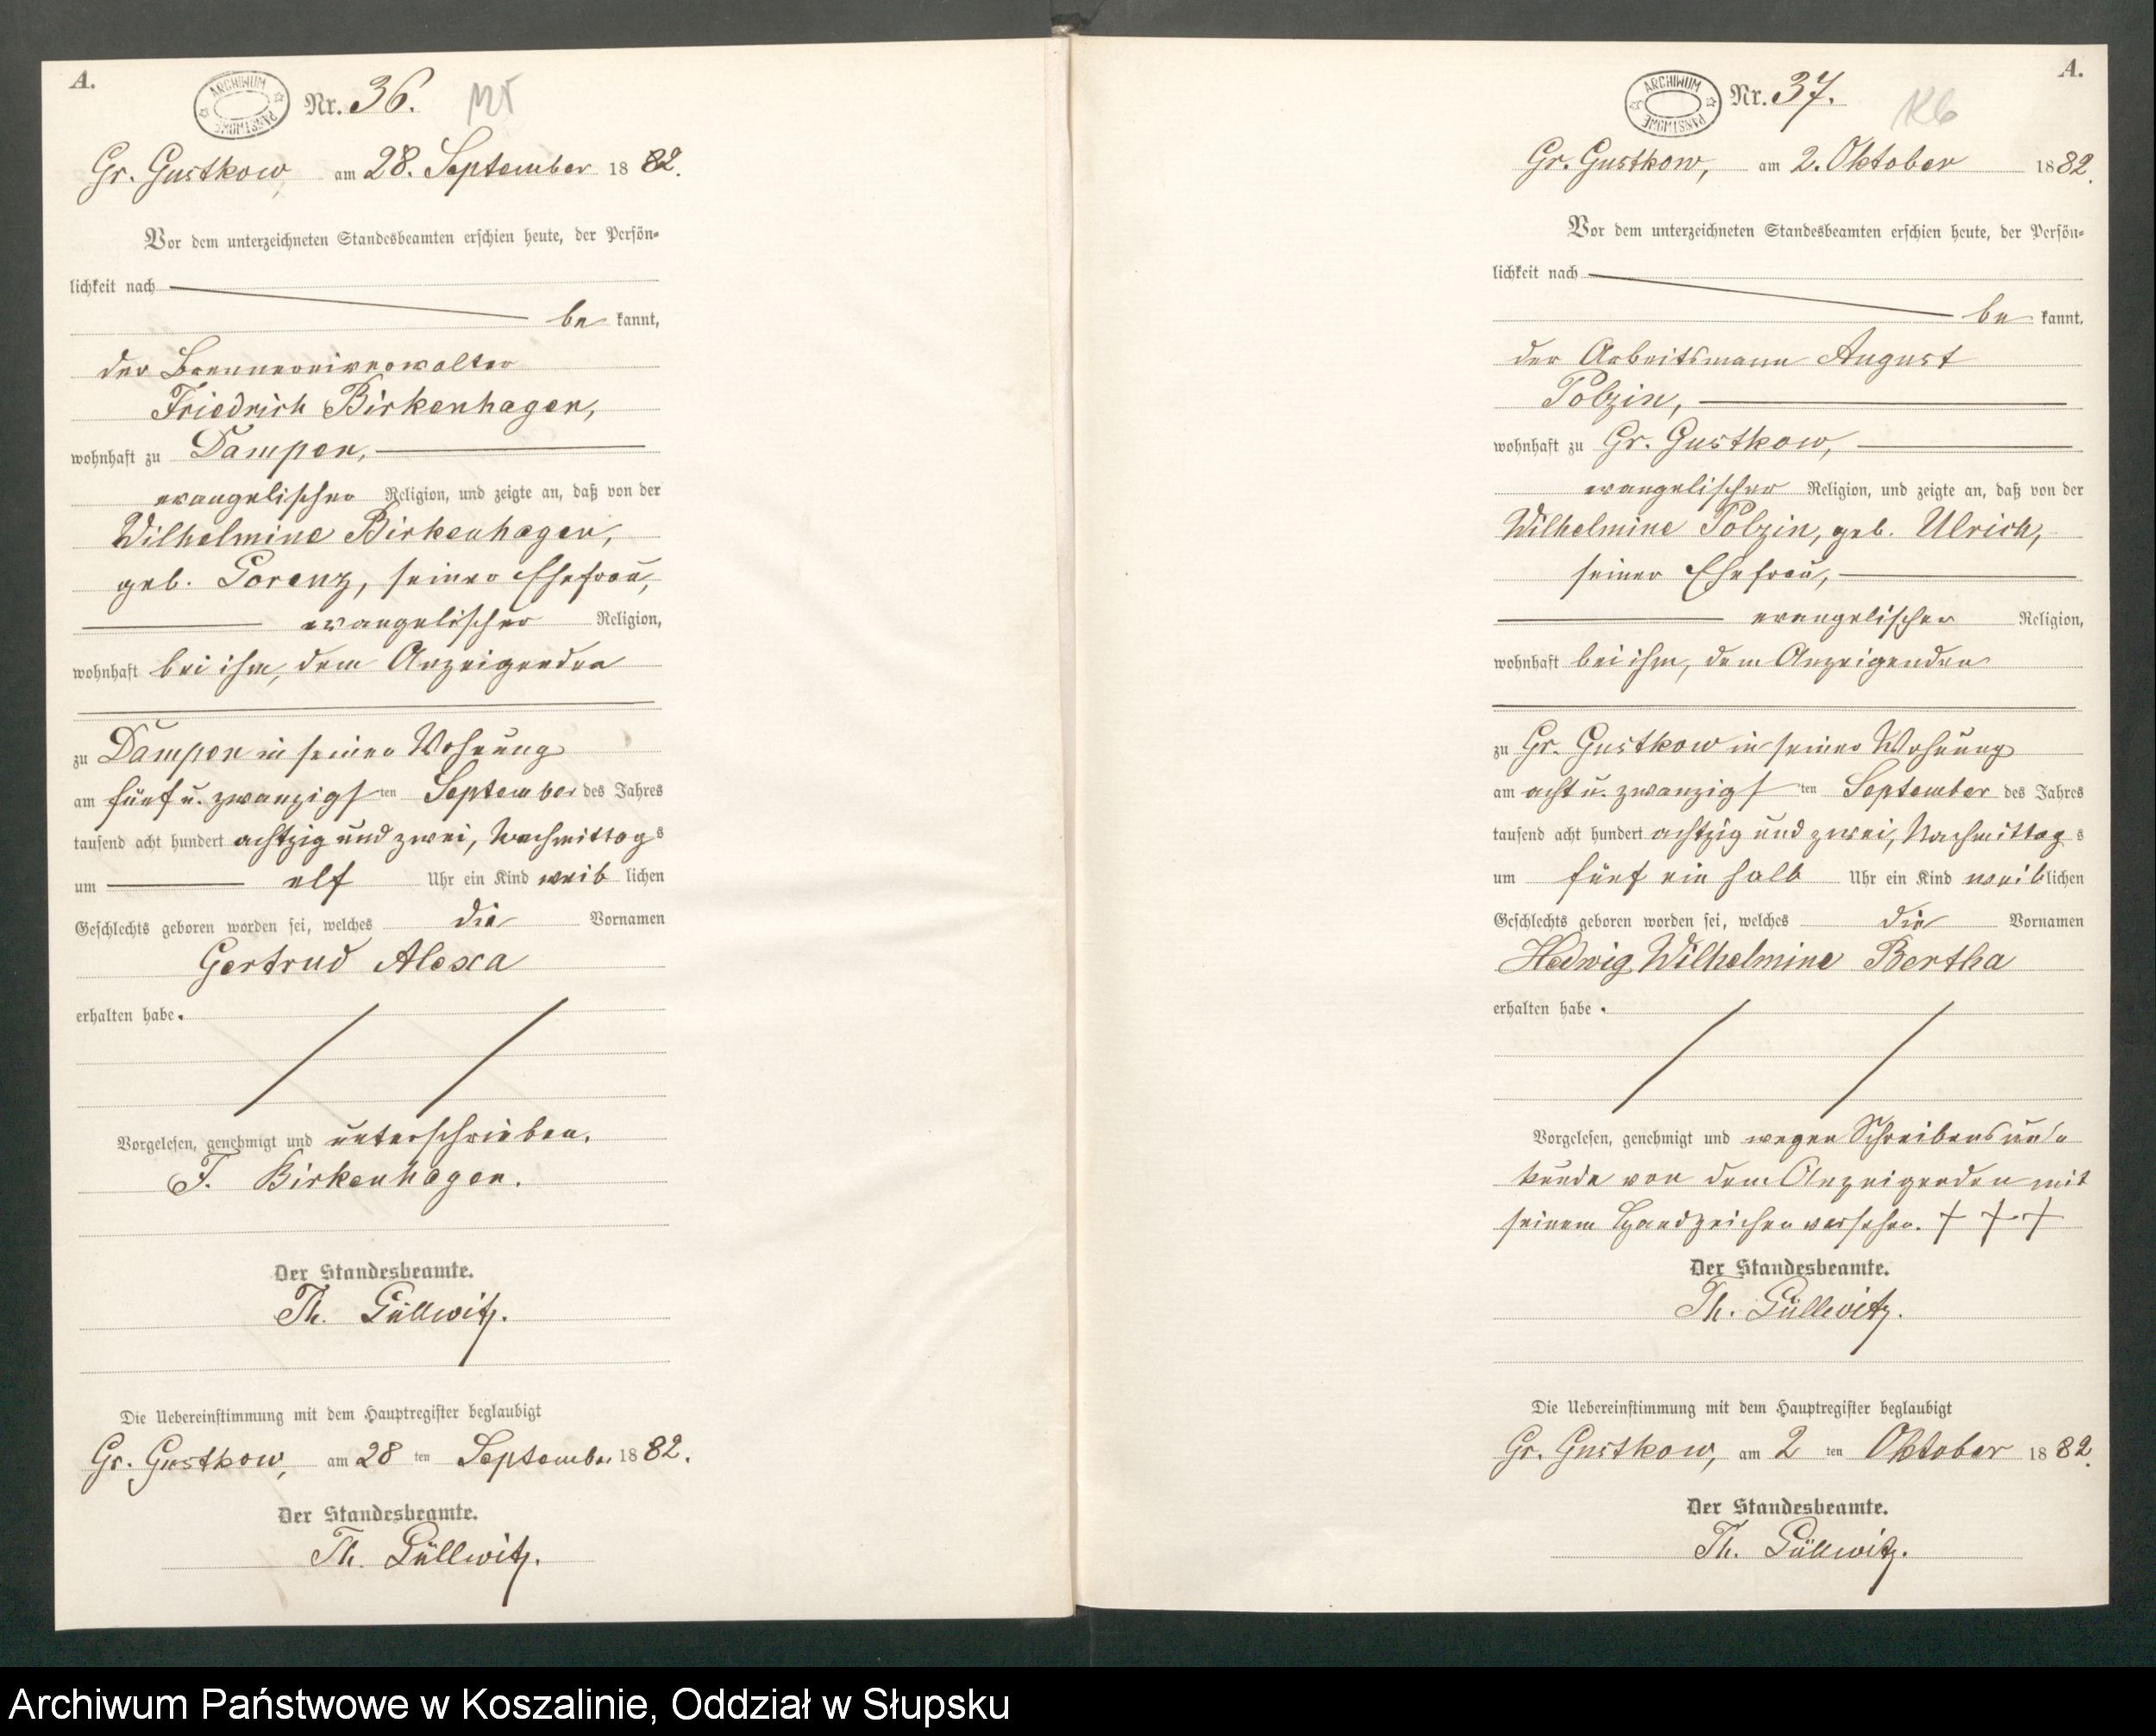 A.
ARCHIWUM PAŃSTWOWE
Nr. 36.
Gr. Gustkow, am 28. September 1882.
Vor dem unterzeichneten Standesbeamten erschien heute, der Persön-
lichkeit nach
be kannt,
der Brennereiverwalter
Friedrich Birkenhagen,
wohnhaft zu Dampen,
evangelischer Religion, und zeigte an, daß von der
Wilhelmine Birkenhagen,
geb. Lorenz, seiner Ehefrau,
evangelischer Religion,
wohnhaft bei ihm, dem Anzeigenden
zu Dampen in seiner Wohnung
am fünf u. zwanzigsten September des Jahres
tausend acht hundert achtzig und zwei, Nachmittags
um elf Uhr ein Kind weiblichen
Geschlechts geboren worden sei, welches die Vornamen
Gertrud Alexa
erhalten habe.
Vorgelesen, genehmigt und unterschrieben.
F. Birkenhagen.
Der Standesbeamte.
Th. Güllwitz.
Die Uebereinstimmung mit dem Hauptregister beglaubigt
Gr. Gustkow, am 28 ten September 1882.
Der Standesbeamte.
Th. Güllwitz.
A.
ARCHIWUM PAŃSTWOWE
Nr. 37.
Gr. Gustkow, am 2. Oktober 1882.
Vor dem unterzeichneten Standesbeamten erschien heute, der Persön-
lichkeit nach
be kannt,
der Arbeitsmann August
Polzin,
wohnhaft zu Gr. Gustkow,
evangelischer Religion, und zeigte an, daß von der
Wilhelmine Polzin, geb. Ulrich,
seiner Ehefrau,
evangelischer Religion,
wohnhaft bei ihm, dem Anzeigenden
zu Gr. Gustkow in seiner Wohnung
am acht u. zwanzigsten September des Jahres
tausend acht hundert achtzig und zwei, Nachmittags
um fünf ein halb Uhr ein Kind weiblichen
Geschlechts geboren worden sei, welches die Vornamen
Hedwig Wilhelmine Bertha
erhalten habe.
Vorgelesen, genehmigt und wegen Schreibensun-
kunde von dem Anzeigenden mit
seinem Handzeichen versehen. + + +
Der Standesbeamte.
Th. Güllwitz.
Die Uebereinstimmung mit dem Hauptregister beglaubigt
Gr. Gustkow, am 2 ten Oktober 1882.
Der Standesbeamte.
Th. Güllwitz.
Archiwum Państwowe w Koszalinie, Oddział w Słupsku